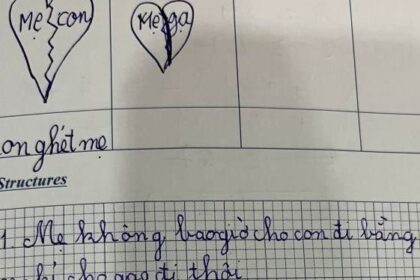 Mẹ con
Mẹ gạ
on ghét mẹ
Structures
1 Mẹ không bao giờ cho con đi bằng
cho gạo đi thôi